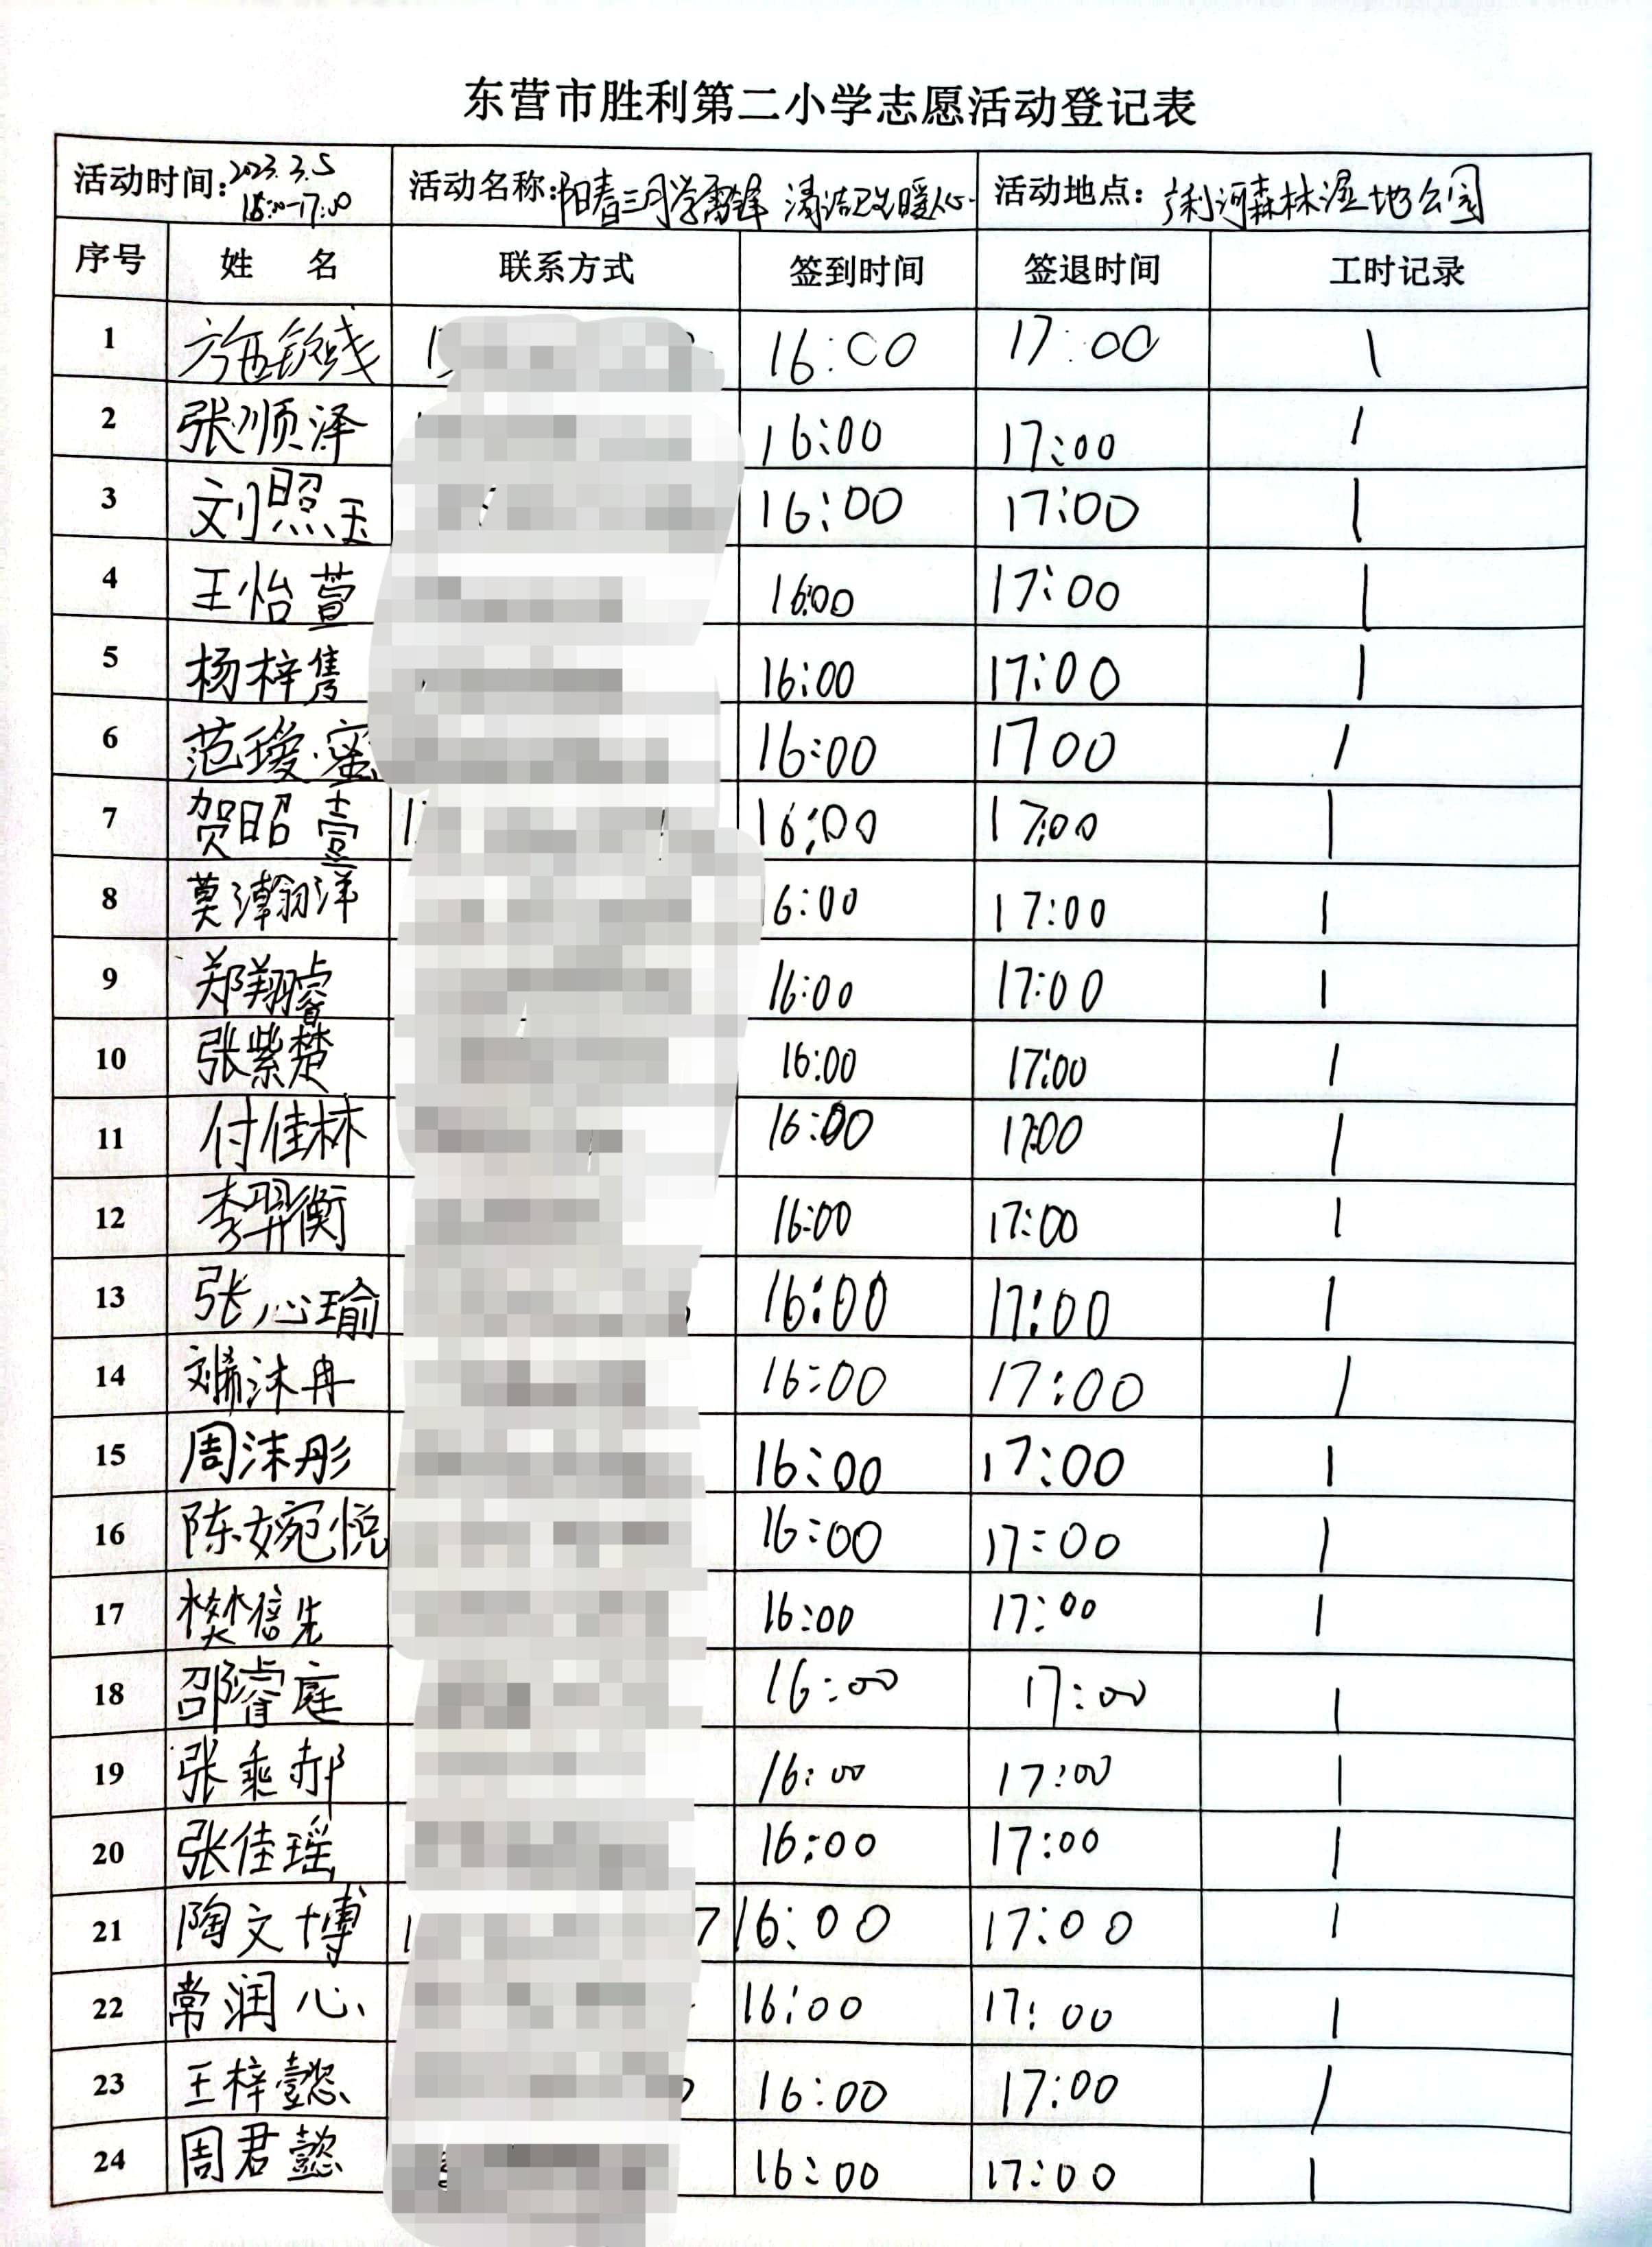 东营市胜利第二小学志愿活动登记表
活动时间:2023.3.5 16:00-17:00 活动名称:阳春三月学雷锋 清洁卫生暖人心 活动地点:利河森林湿地公园
序号 姓 名 联系方式 签到时间 签退时间 工时记录
1 16:00 17:00 1
2 张顺泽 16:00 17:00 1
3 刘照玉 16:00 17:00 1
4 王怡萱 16:00 17:00 1
5 杨梓隽 16:00 17:00 1
6 范瑷蜜 16:00 17 00 1
7 贺昭壹 16:00 17:00 1
8 莫瀚洋 6:00 17:00 1
9 郑翔睿 16:00 17:00 1
10 张紫楚 16:00 17:00 1
11 付佳林 16:00 17:00 1
12 李羿衡 16:00 17:00 1
13 张心瑜 16:00 17:00 1
14 沐冉 16:00 17:00 1
15 周沫彤 16:00 17:00 1
16 陈婉悦 16:00 17:00 1
17 樊信先 16:00 17:00 1
18 邵睿庭 16:00 17:00 1
19 张乘郝 16:00 17:00 1
20 张佳瑶 16:00 17:00 1
21 陶文博 1 7 16:00 17:00 1
22 常润心 16:00 17:00 1
23 王梓懿 16:00 17:00 1
24 周君懿 16:00 17:00 1